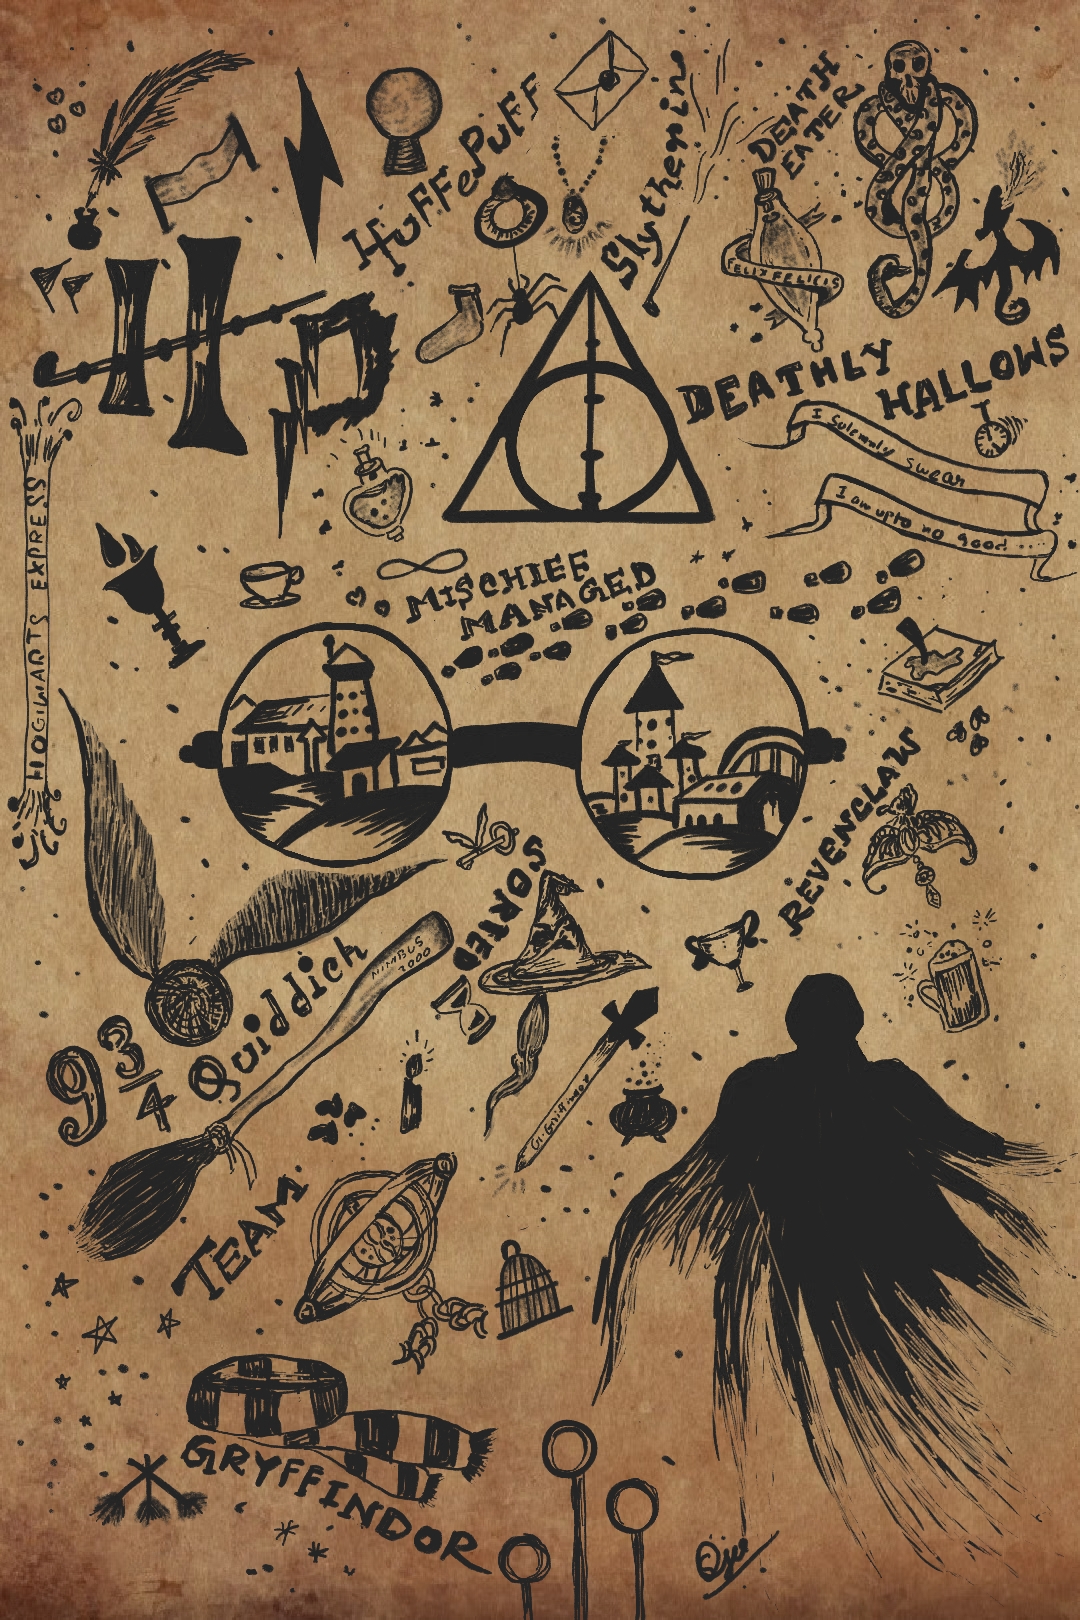 HuFFePuFF
Slytherin
DEATH
EATER
FELIX FELICIS
HP
DEATHLY
HALLOWS
I Solemnly swear
I am upto no good....
HOGWARTS EXPRESS
MISCHIEF
MANAGED
REVENCLAW
SORTED
Quiddich
NIMBUS
2000
9 3/4
G.Griffindor
TEAM
GRYFFINDOR